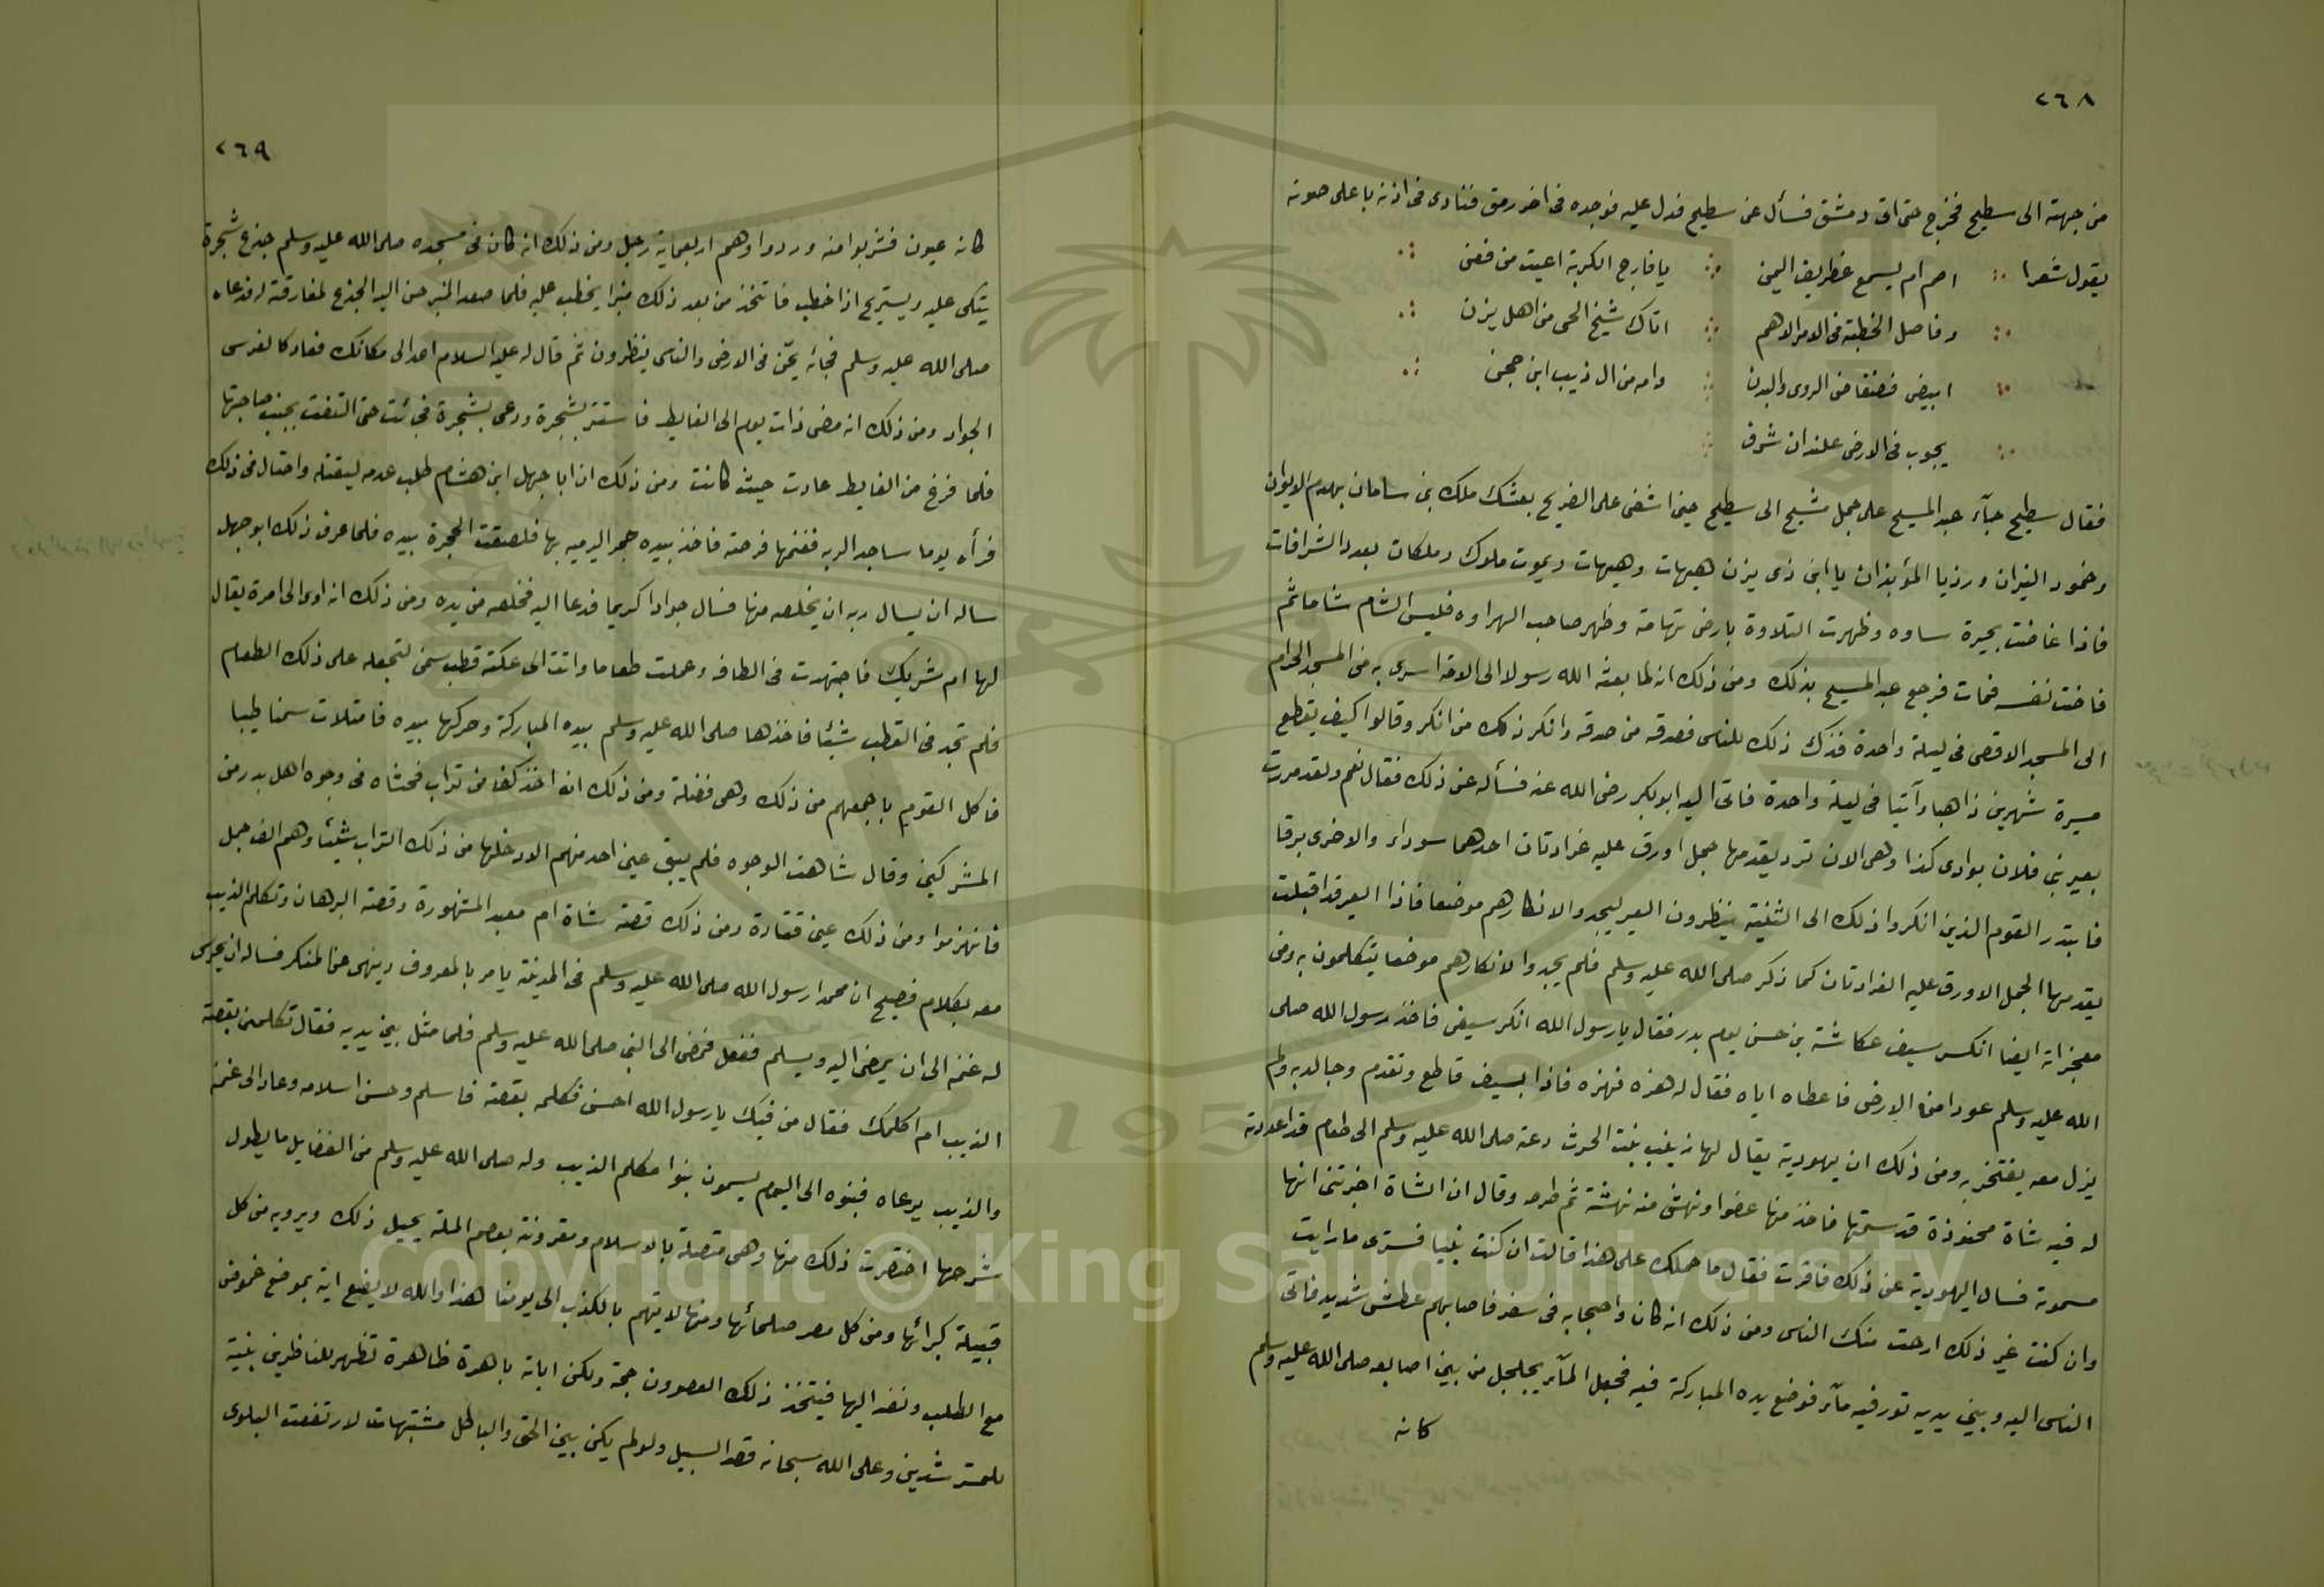 ٢٦٨
من جهته الى سطيح فخرج حتى اتى دمشق فسأل عن سطيح فدل عليه فوجده فى اخر رمق فنادى فى اذنه باعلى صوته
يقول شعرا اصم ام يسمع غطريف اليمن يا فارج الكربة اعيت من فمن
وفاصل الخطبة فى الامر الاهم اتاك شيخ الحى من اهل يزن
ابيض فضفاض الروى والبدن وامه من ال ذيب ابن حجن
يجوب فى الارض علندان شرق
فقال سطيح جآء عبد المسيح على جمل مشيح الى سطيح حين اشفى على الضريح بعثك ملك بنى ساسان بهدم الايوان
وخمود النيران ورؤيا المؤبذان يا ابن ذى يزن هيهات وهيهات ويموت ملوك وملكات بعدد الشرافات
فاذا غاضت بحيرة ساوه وظهرت التلاوة بارض تهامة وظهر صاحب الهراوه فليس الشام شاما ثم
فاضت نفسه فمات فرجع عبد المسيح بذلك ومن ذلك انه لما بعثه الله رسولا الى الامة اسرى به من المسجد الحرام
الى المسجد الاقصى فى ليلة واحدة فذكر ذلك للناس فصدقه من صدقه وانكر ذلك من انكر وقالوا كيف يقطع
مسيرة شهرين ذاهبا وآتيا فى ليلة واحدة فاتى اليه ابو بكر رضى الله عنه فسأله عن ذلك فقال نعم ولقد مررت
بعير بنى فلان بوادى كذا وهى الان ترد يقدمها جمل اورق عليه غرارتان احدهما سوداء والاخرى برقا
فابتدر القوم الذين انكروا ذلك الى الثنية ينظرون العير ليجدوا لانكارهم موضعا فاذا العير قد اقبلت
يقدمها الجمل الاورق عليه الغرارتان كما ذكر صلى الله عليه وسلم فلم يجدوا لانكارهم موضعا يتكلمون به ومن
معجزاته ايضا انكسر سيف عكاشة بن حسن يوم بدر فقال يا رسول الله انكسر سيفى فاخذ رسول الله صلى
الله عليه وسلم عودا من الارض فاعطاه اياه فقال له هزه فهزه فاذا بسيف قاطع وتقدم وجالد به ولم
يزل معه يفتخر به ومن ذلك ان يهودية يقال لها زينب بنت الحرث دعته صلى الله عليه وسلم الى طعام قد اعددته
له فيه شاة محنوذة قد سمتها فاخذ منها عضوا ونهش منه نهشة ثم طرحه وقال ان الشاة اخبرتنى انها
مسموته فسال اليهودية عن ذلك فاقرت فقال ما حملك على هذا قالت ان كنت نبيا فسترى ما رايت
وان كنت غير ذلك ارحت منك الناس ومن ذلك انه كان واصحابه فى سفر فاصابهم عطش شديد فاتى
الناس اليه وبين يديه تور فيه مآء فوضع يده المباركة فيه فجعل المآء يجلجل من بين اصابعه صلى الله عليه وسلم
كانه
٢٦٩
كانه عيون فشربوا منه وردوا وهم اربعماية رجل ومن ذلك انه كان فى مسجده صلى الله عليه وسلم جذع شجرة
يتكى عليه ويستريح اذا خطب فاتخذ من بعد ذلك منبرا يخطب عليه فلما صعد المنبر حن اليه الجذع لمفارقته له فدعاه
صلى الله عليه وسلم فجائه يحن فى الارض والناس ينظرون ثم قال له عليه السلام اعد الى مكانك فعاد كالفرس
الجواد ومن ذلك انه مضى ذات يوم الى الغايط فاستتر بشجرة ودعى بشجرة فجائت حتى التفت بجنب صاحبتها
فلما فرغ من الغايط عادت حيث كانت ومن ذلك ان ابا جهل ابن هشام طلب عدمه ليقتله واحتال فى ذلك
فرأه يوما ساجدا لربه فغنمها فرصته فاخذ بيده حجرا ليرميه بها فلصقت الحجرة بيده فلما عرف ذلك ابو جهل
ساله ان يسال ربه ان يخلصه منها فسال جوادا كريما فدعا اليه فخلصه من يده ومن ذلك انه اوى الى امرة يقال
لها ام شريك فاجتهدت فى الطافه وعملت طعاما واتت الى عكته قطب سمن لتجعله على ذلك الطعام
فلم تجد فى القطب شيئا فاخذها صلى الله عليه وسلم بيده المباركة وحركها بيده فامتلات سمنا طيبا
فاكل القوم باجمعهم من ذلك وهى فضلة ومن ذلك انه اخذ كفا من تراب فحثاه فى وجوه اهل بدر من
المشركين وقال شاهت الوجوه فلم يبق عين احد منهم الا دخلها من ذلك التراب شيئا وهم الف رجل
فانهزموا ومن ذلك عين قتادة ومن ذلك قصة شاة ام معبد المشهورة وقصة البرهان وتكلم الذيب
معه بكلام فصيح ان محمدا رسول الله صلى الله عليه وسلم فى المدينة يامر بالمعروف وينهى عن المنكر فساله ان يحرس
له غنمه الى ان يمضى اليه ويسلم ففعل فمضى الى النبى صلى الله عليه وسلم فلما مثل بين يديه فقال تكلمنى بقصة
الذيب ام اكلمك فقال من فيك يا رسول الله احسن فكلمه بقصته فاسلم وحسن اسلامه وعاد الى غنمه
والذيب يرعاه فبنوه الى اليوم يسمون بنوا مكلم الذيب وله صلى الله عليه وسلم من الفضايل ما يطول
شرحها اختصرت ذلك منها وهى متصلة بالاسلام ومقرونة بعصم الملة يحيل ذلك ويرويه من كل
قبيلة كبرائها ومن كل مصر صلحائها ومنها لا يتهم بالكذب الى يومنا هذا والله لا يضع اية بموضع غموض
مع الطلب ونفه اليها فيتخذ ذلك العصوون حجة ولكن اياته باهرة ظاهرة تظهر للناظرين بنية
للمسترشدين وعلى الله سبحانه قصد السبيل ولو لم يكن بين الحق والباطل مشتبهات لارتفعت البلوى
Copyright © King Saud University
1957